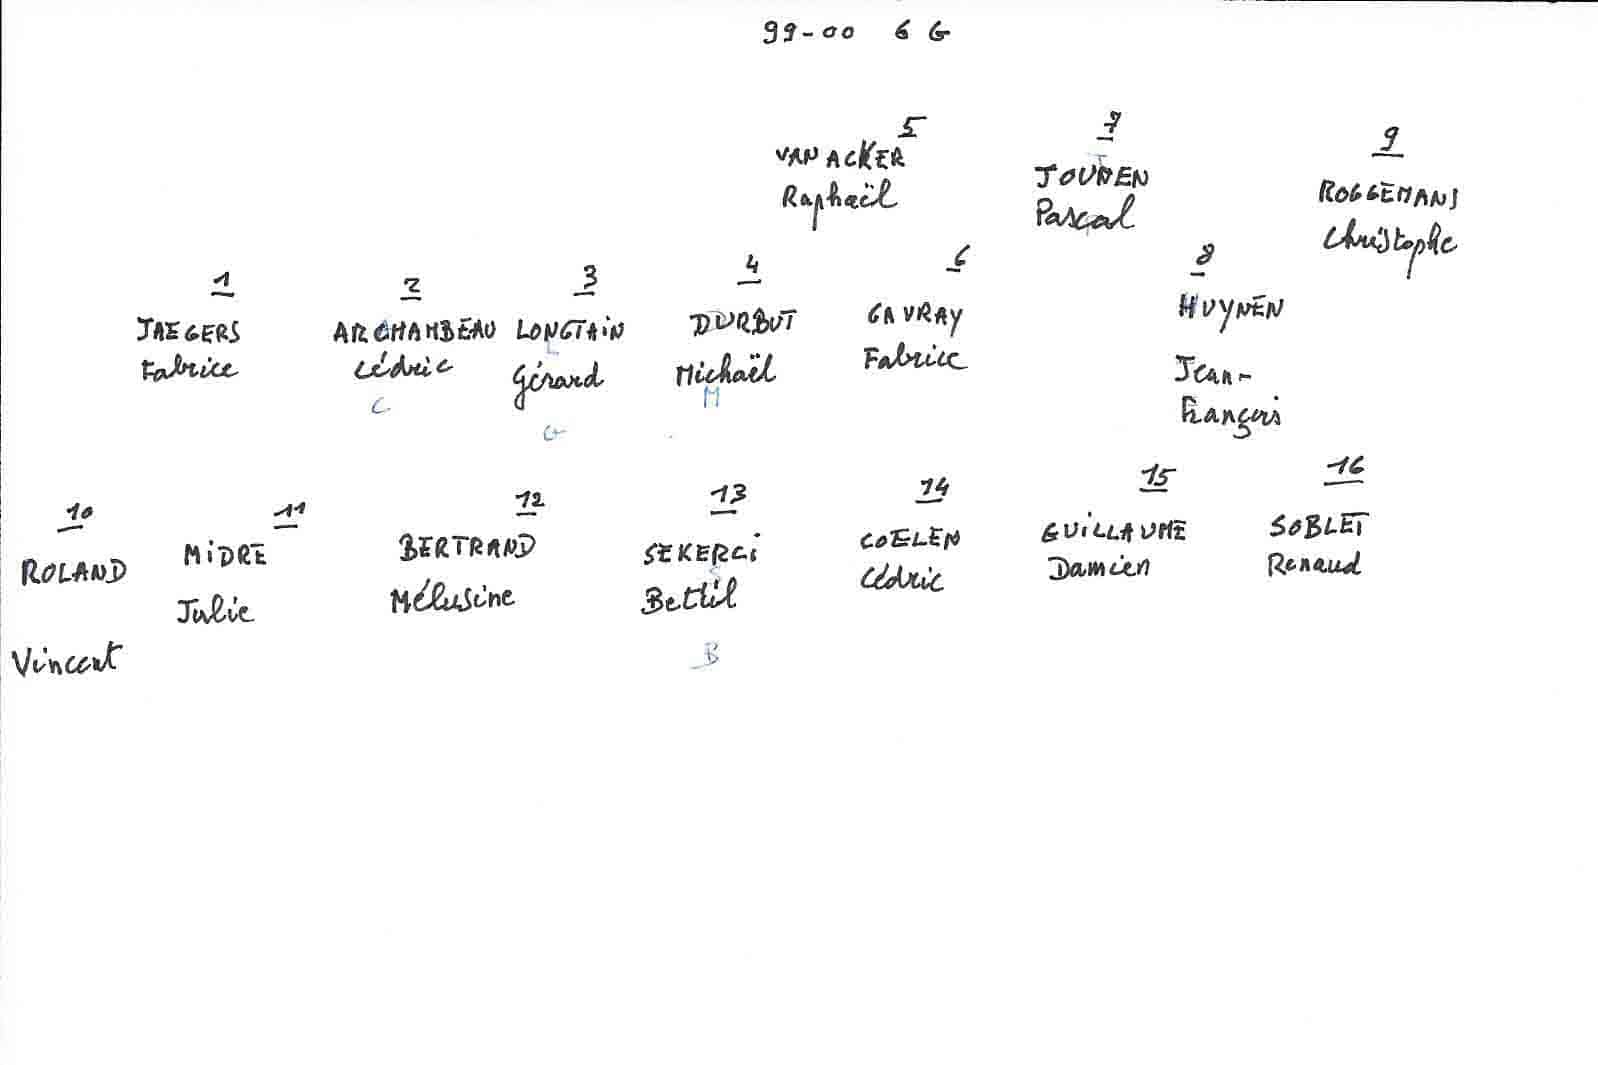 99-00 6 G
5
VAN ACKER
Raphaël
7
JOUDEN
Pascal
9
ROGGEMANS
Christophe
1
JAEGERS
Fabrice
2
ARCHAMBEAU
Cédric
C
3
LONGTAIN
L
Gérard
G
4
DURBUT
Michaël
M
6
GAVRAY
Fabrice
8
HUYNEN
Jean-
François
10
ROLAND
Vincent
11
MIDRE
Julie
12
BERTRAND
Mélusine
13
SEKERCI
S
Bettil
B
14
COELEN
Cédric
15
GUILLAUME
Damien
16
SOBLET
Renaud